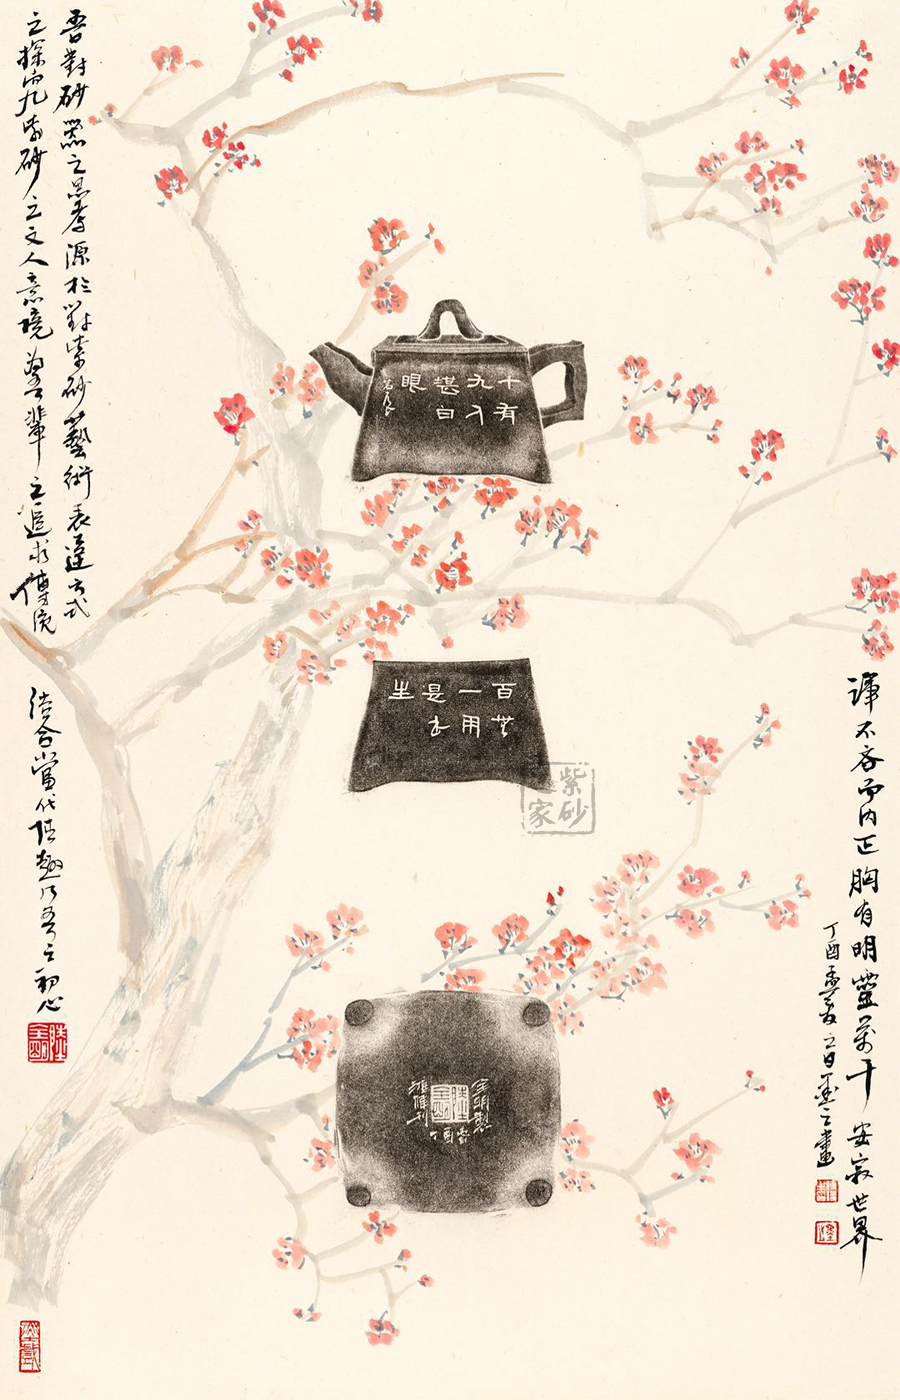 吾對砂器之思考源於對紫砂藝術表達方式
之探內九紫砂之文人意境為吾輩之追求傳統
結合當代情趣乃吾之初心
十有
九人
堪白
眼
百無
一用
是书
生
紫砂
家
全明製
丁酉春
不吝而內正胸有明靈萬千安寂世界
丁酉孟夏之日之畫